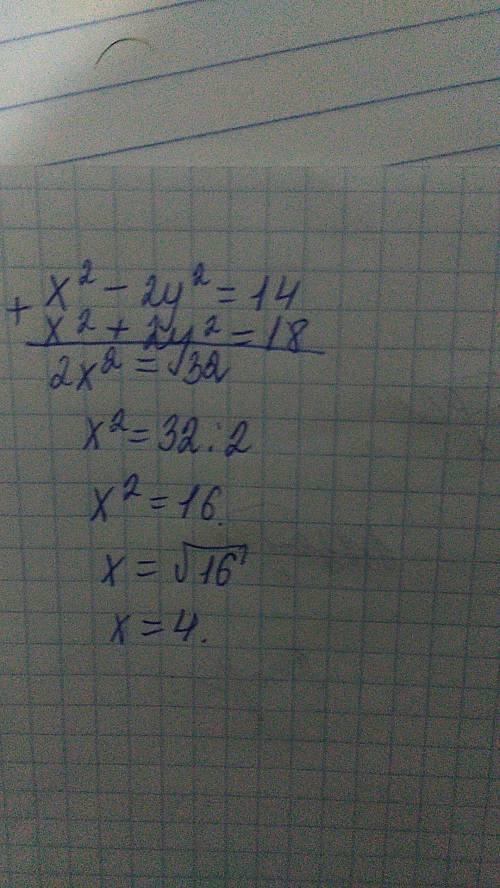 + x² - 2y² = 14
x² + 2y² = 18
2x² = √32
x² = 32 : 2
x² = 16.
x = √16
x = 4.